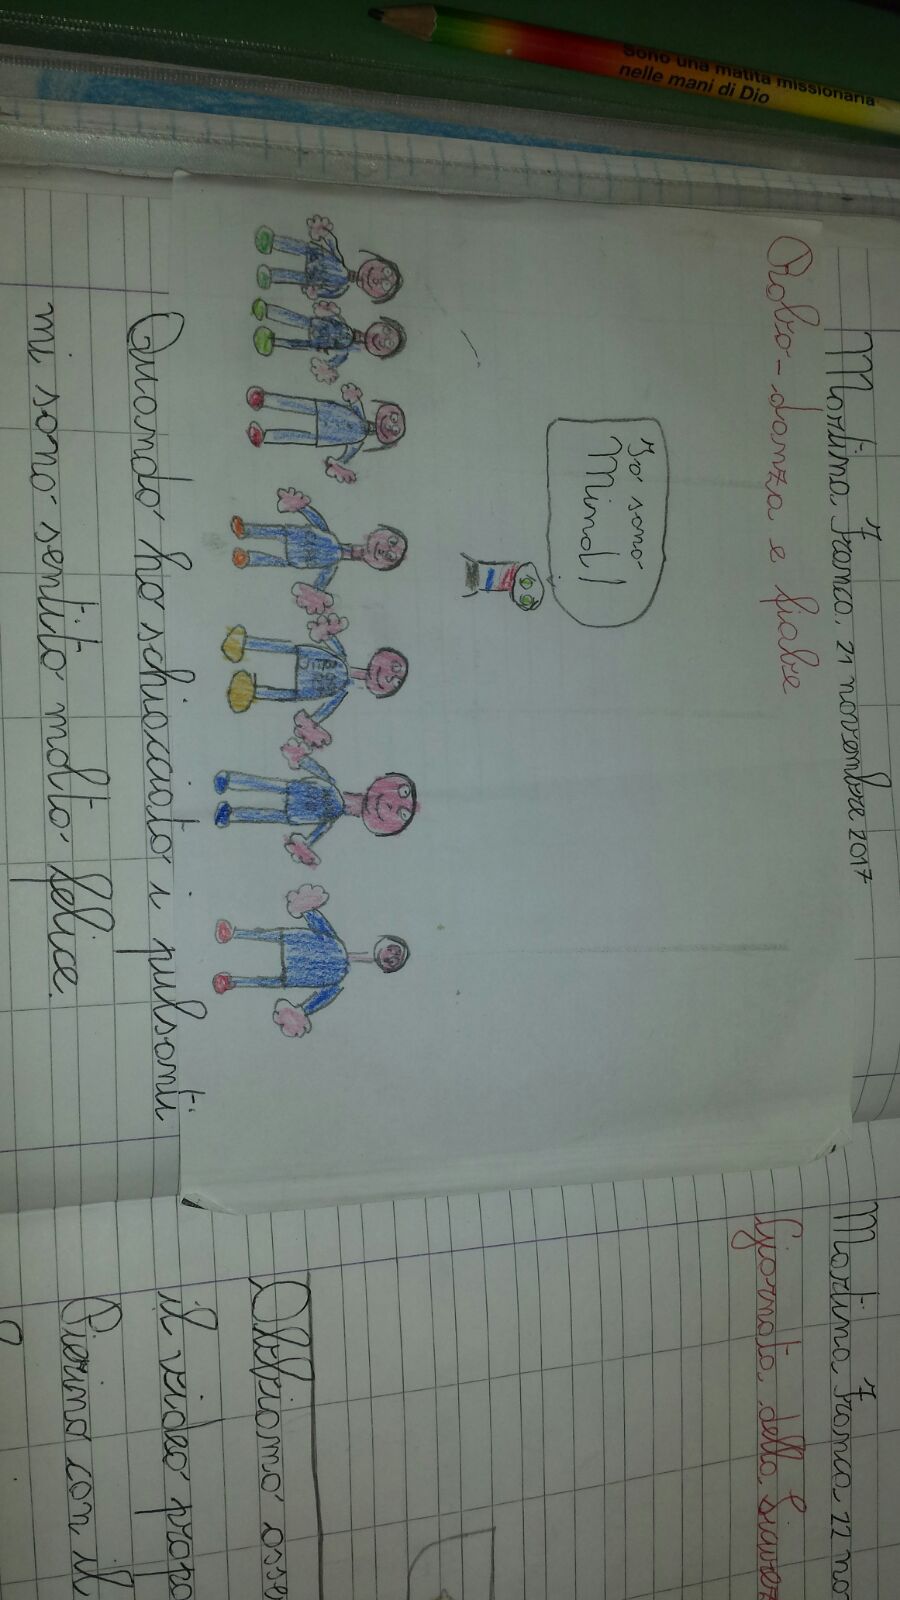 Sono una matita missionaria
nelle mani di Dio
Martina Franca, 21 novembre 2017
Robo-danza e fiabe
Io sono
Mind!
Quando ho schiacciato i pulsanti
mi sono sentito molto felice.
Martina Franca, 22 no
Giornata della Sicurez
Abbiamo osse
il video propo
Pierino con il